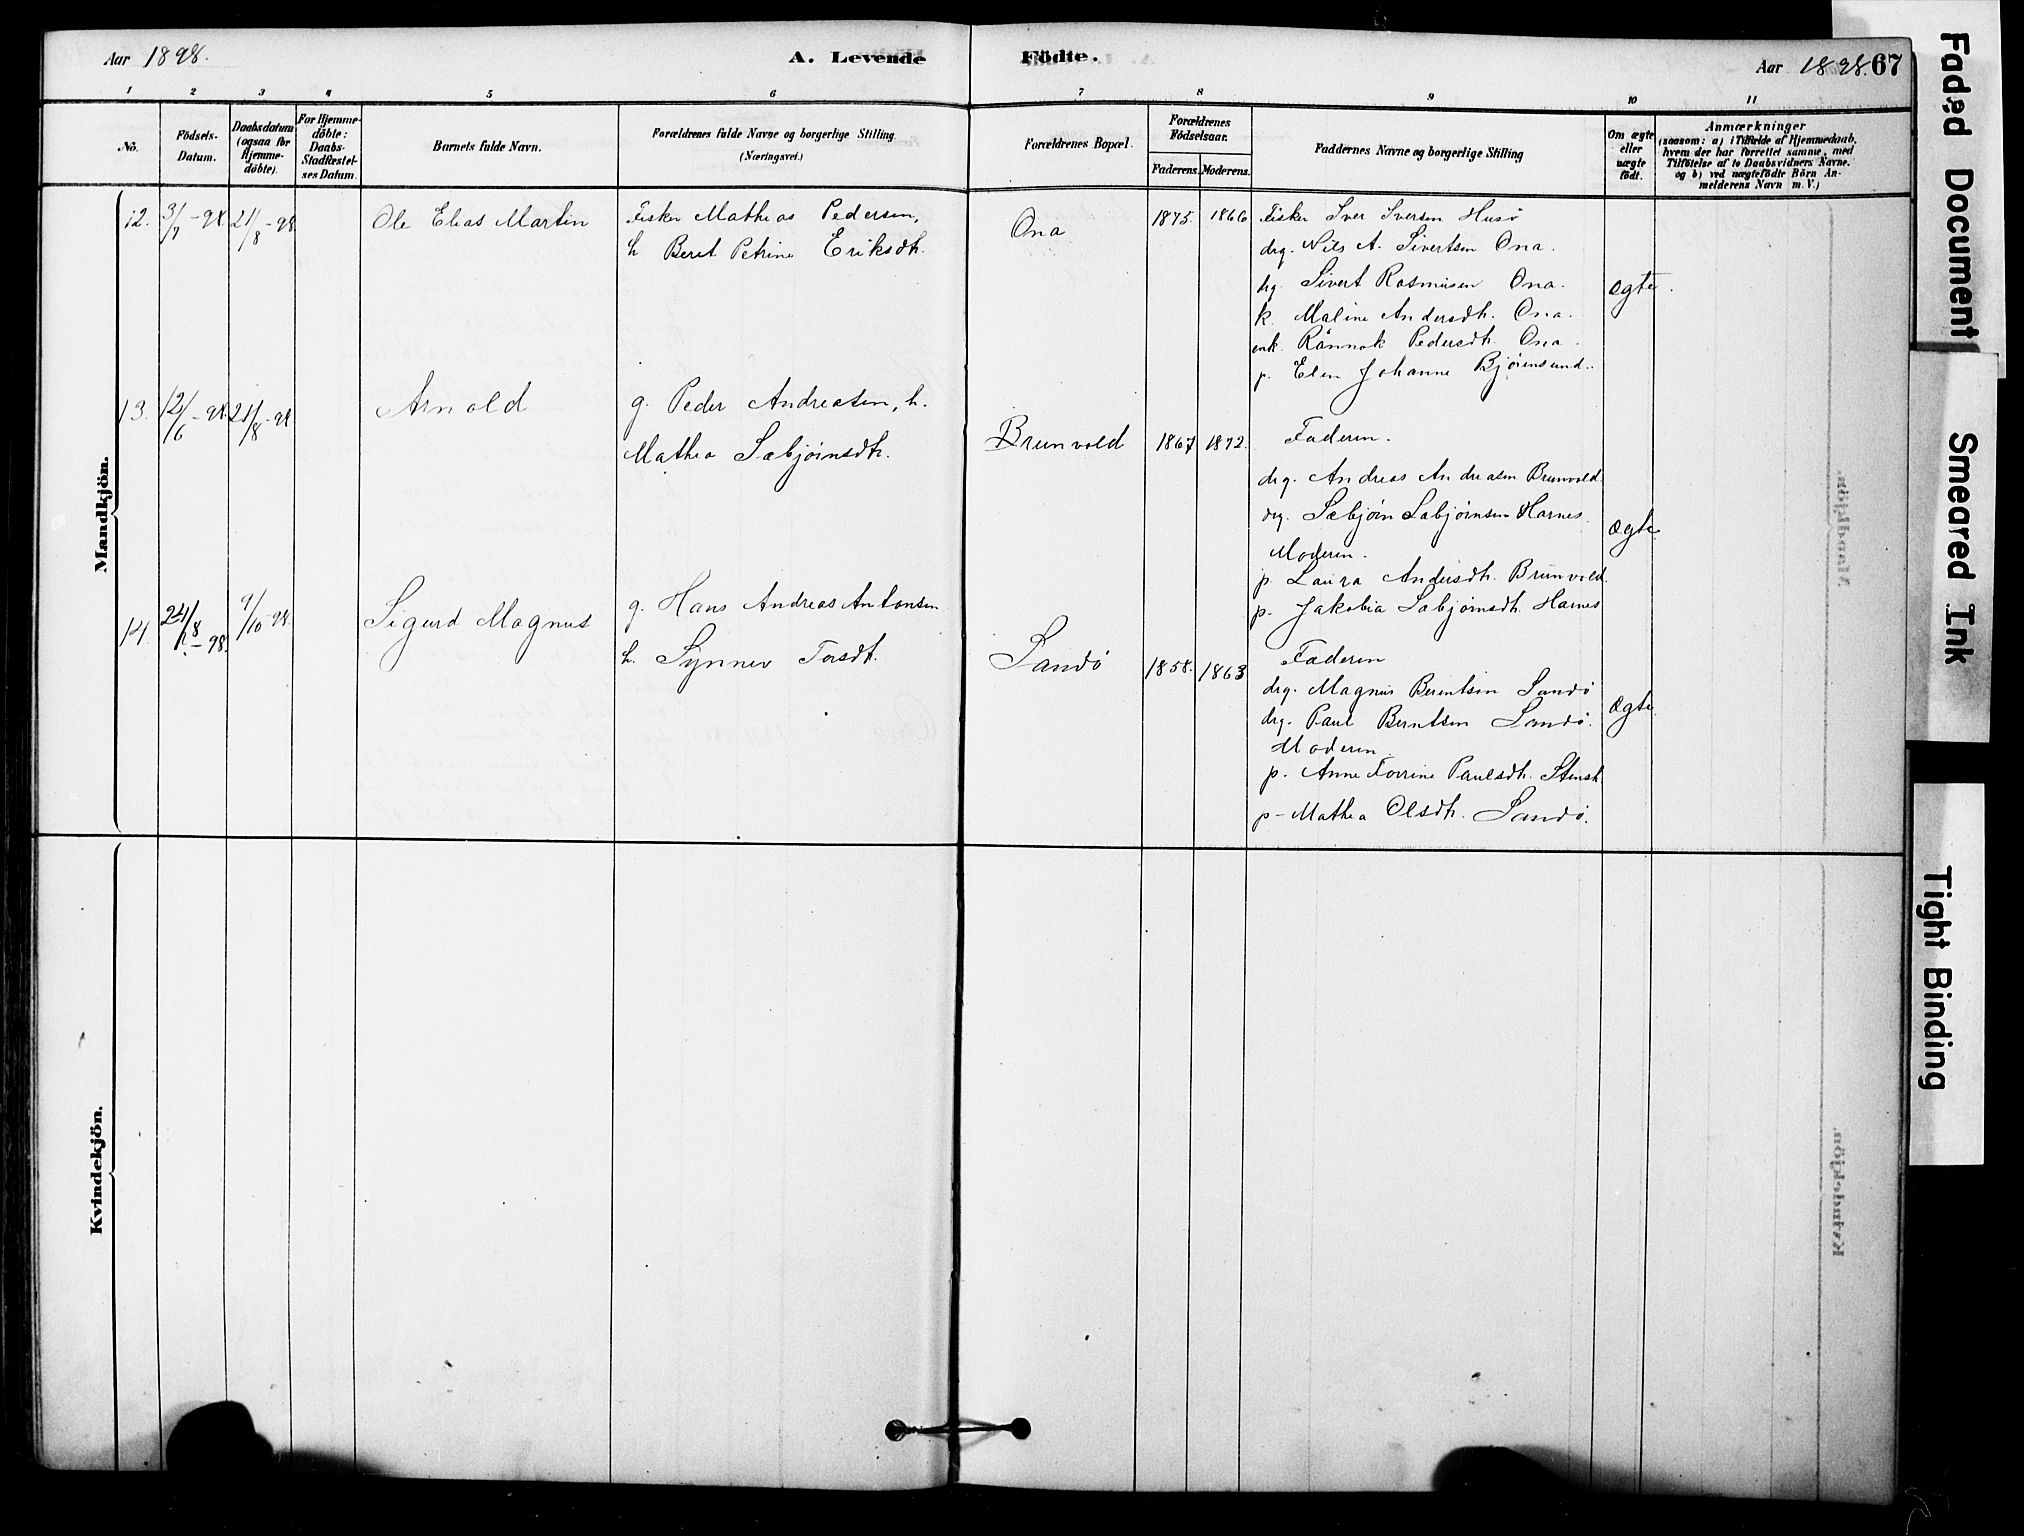 Aar 1898.
A. Levende Födte.
Aar 1898. 67
1 2 3 4 5 6 7 8 9 10 11
No.
Födsels-Datum.
Daabsdatum (ogsaa for Hjemme-döbte).
For Hjemme-döbte: Daabs-Stadfæstel-ses Datum.
Barnets fulde Navn.
Forældrenes fulde Navne og borgerlige Stilling.
(Næringsvei.)
Forældrenes Bopæl.
Forældrenes Födselsaar.
Faderens. Moderens.
Faddernes Navne og borgerlige Stilling
Om ægte eller uægte födt.
Anmærkninger
(saasom: a) i Tilfælde af Hjemmedaab,
hvem der har forrettet samme, med
Tilföielse af to Daabsvidners Navne.
og b) ved uægtefödte Börn An-
melderens Navn m. V.)
Mandkjön.
12. 3/7-98. 21/8-98. Ole Elias Martin
Fisker Mathias Pedersen,
h Berit Petrine Eriksdtr.
Ona 1875. 1866
Fisker Iver Iversen Husø
drg. Nils A. Sivertsen Ona.
drg. Sivert Rasmusen Ona.
k. Maline Andersdtr. Ona.
enk. Rannok Pedersdtr. Ona.
p. Elen Johanne Bjørnsund.
ægte.
13. 12/6-98. 21/8-98 Arnold
g. Peder Andreasen, h.
Mathea Sæbjørnsdtr.
Brunvold 1867 1872.
Faderen.
drg. Andreas Andreasen Brunvold.
drg. Sæbjørn Sæbjørnsen Harnes.
Moderen.
p. Laura Andersdtr. Brunvold.
p. Jakobia Sæbjørnsdtr. Harnes
ægte
14. 24/8-98. 9/10-98 Sigurd Magnus
g. Hans Andreas Antonsen
h. Synnev Torsdt.
Sandø 1858. 1863
Faderen
drg. Magnus Berentsen Sandø
drg. Paul Berntsen Sandø.
Moderen.
p. Anne Torrine Paulsdtr.
p-Mathea Olsdtr. Sandø.
ægte.
Kvindekjön.
Faded Document
Smeared Ink
Tight Binding